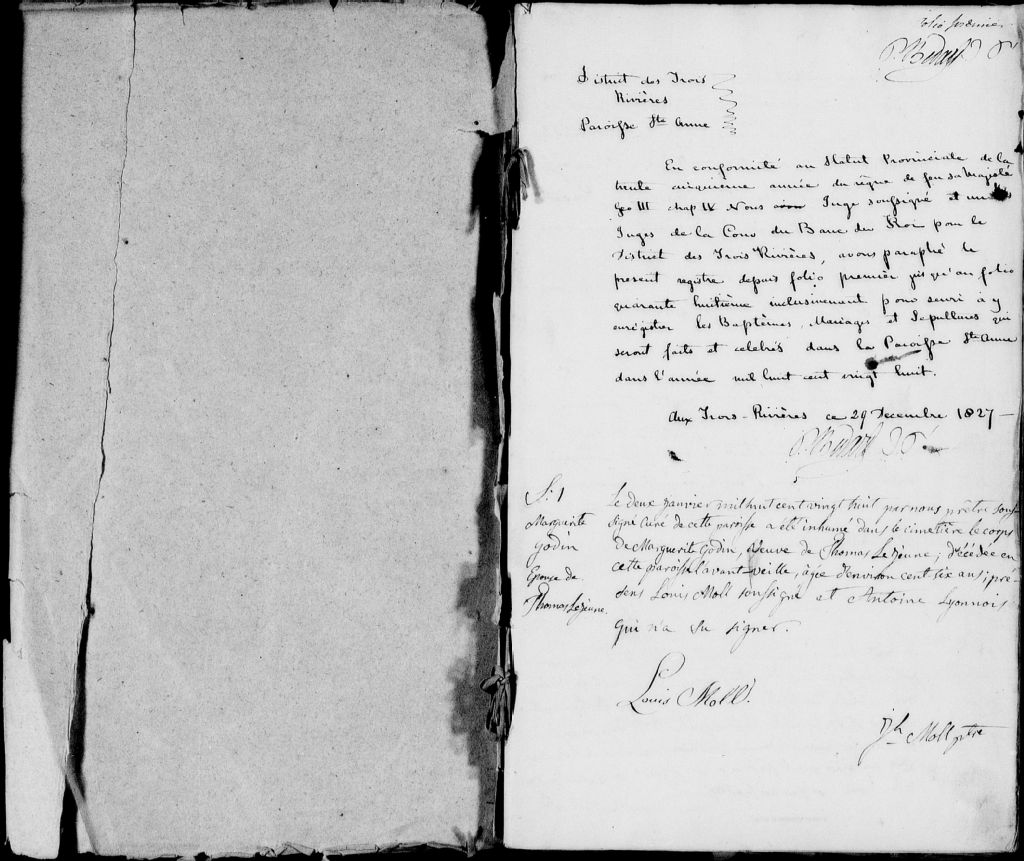 folio premier
P. Bedard
District des Trois
Rivières
Paroisse Ste Anne
En conformité au Statut Provinciale de la
trente cinquieme année du règne de feu sa Majesté
Geo III chap IV Nous Juge soussigné et un des
Juges de la Cour du Banc du Roi pour le
District des Trois Rivières, avons paraphé le
present registre depuis folio premier jusqu'au folio
quarante huitième inclusivement pour servir à y
enrégistrer les Baptêmes, Mariages et Sepultures qui
seront faits et celebrés dans la Paroisse Ste Anne
dans l'année mil huit cent vingt huit.
Aux Trois-Rivières ce 29 Decembre 1827 –
P. Bedard
S. 1
Marguerite
Godin
Epouse de
Thomas Lejeune.
Le deux janvier mil huit cent vingt huit par nous prêtre sous-
signé curé de cette paroisse a été inhumé dans le cimetière le corps
de Marguerite Godin, Veuve de Thomas Lejeune; décédée en
cette paroisse l'avant-veille, agée d'environ cent six ans; pré-
sens Louis Moll soussigné et Antoine Lyonnois
qui n'a su signer.
Louis Moll.
Jh Moll ptre